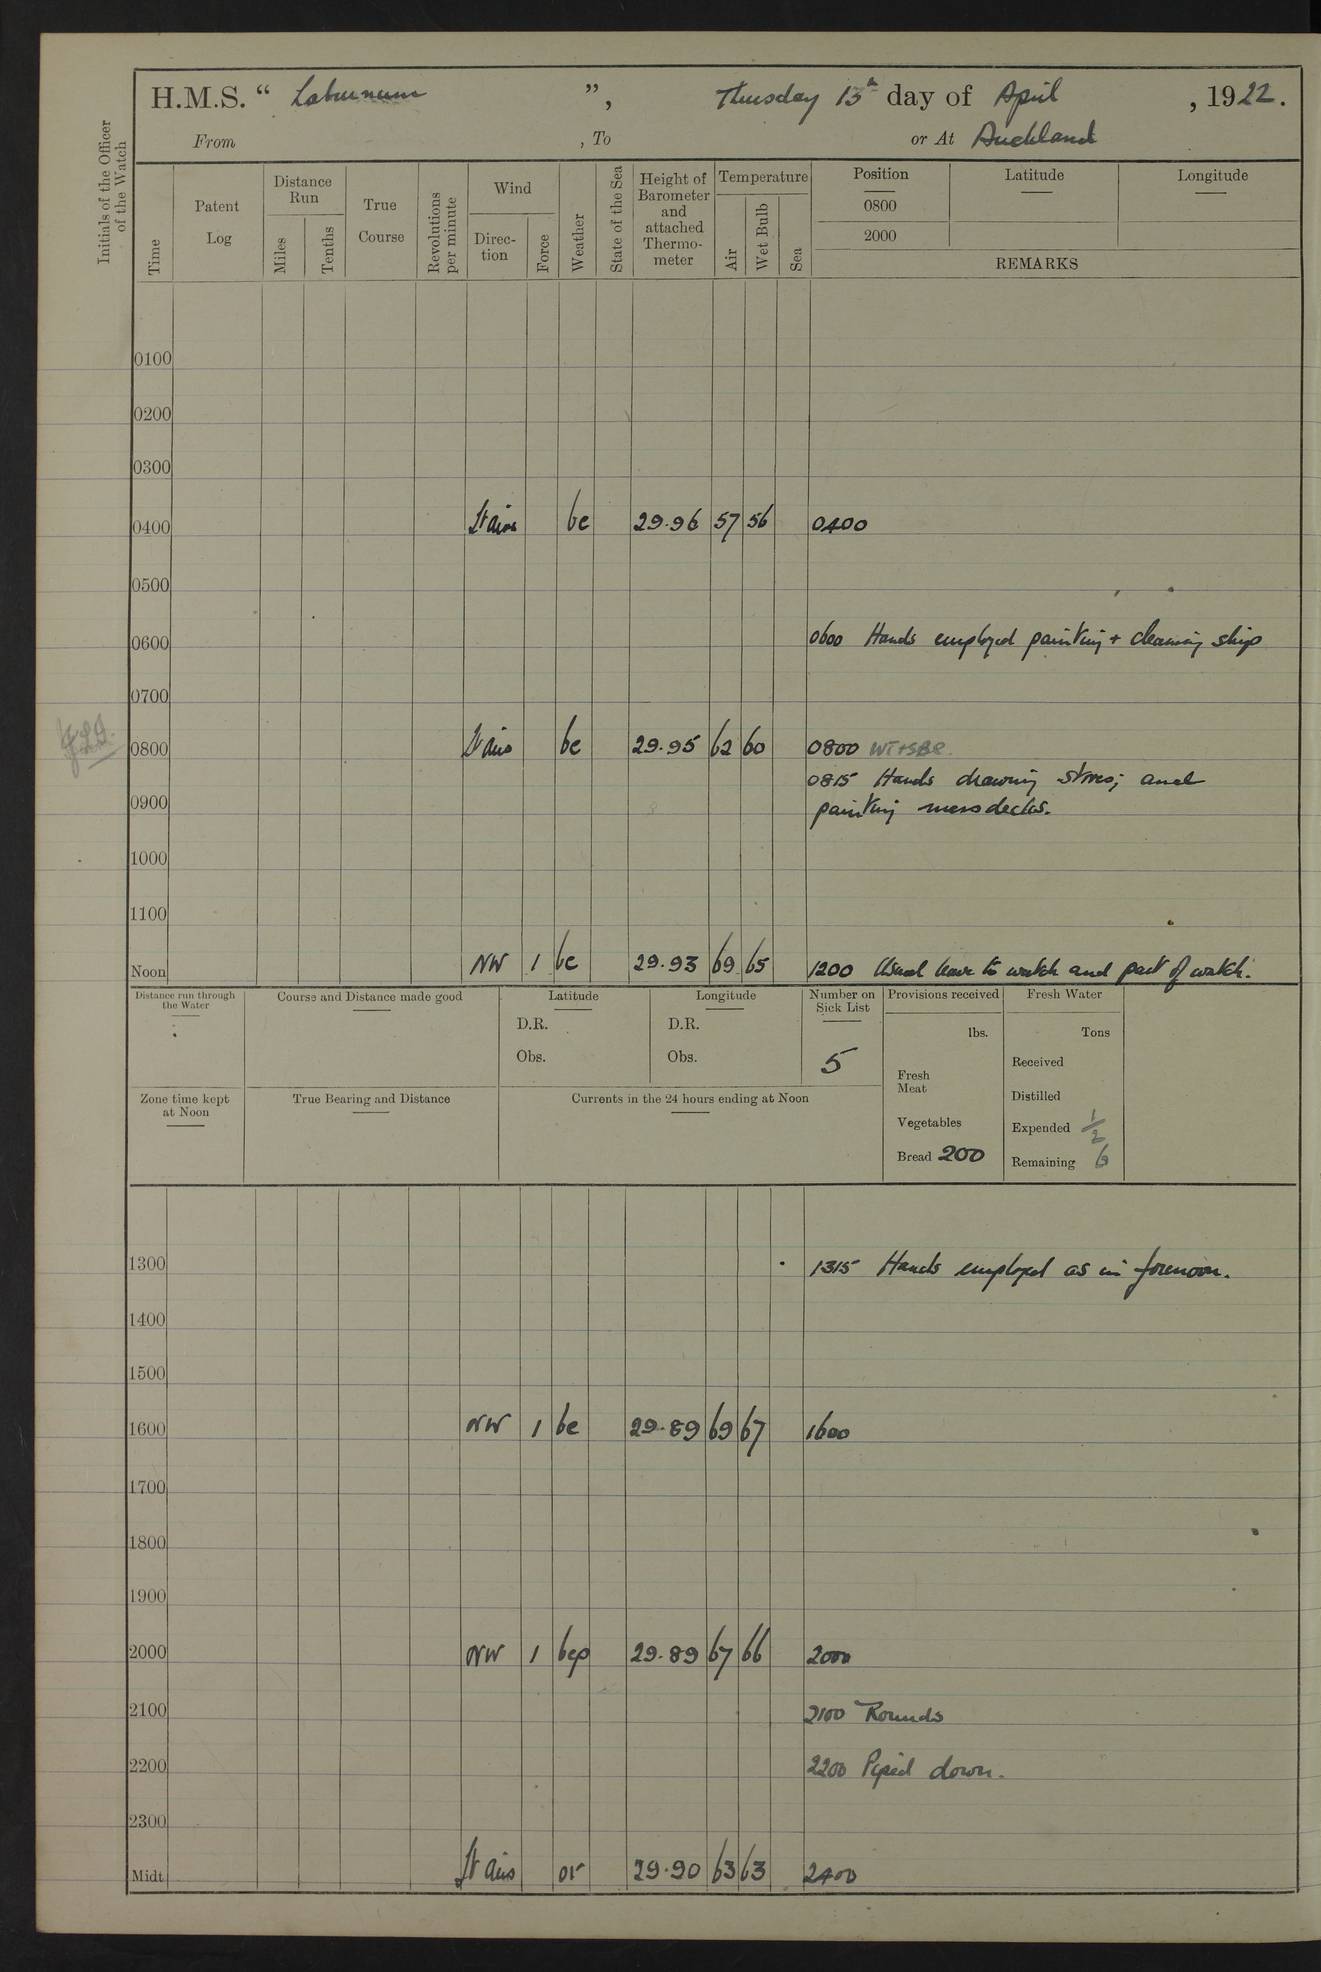 H.M.S. “ Laburnum ”, Thursday 13th day of April , 1922.
From , To or At Auckland
Initials of the Officer of the Watch
Time
Patent Log
Distance Run
Miles
Tenths
True Course
Revolutions per minute
Wind
Direc-tion
Force
Weather
State of the Sea
Height of Barometer and attached Thermo-meter
Temperature
Air
Wet Bulb
Sea
Position Latitude Longitude
0800
2000
REMARKS
0100
0200
0300
0400 Lt airs bc 29.96 57 56 0400
0500
0600 0600 Hands employed painting + cleaning ship
0700
0800 Lt airs bc 29.95 62 60 0800 WT+SBR.
0815 Hands drawing stores; and
0900 painting messdecks.
1000
1100
Noon NW 1 bc 29.93 69 65 1200 Usual leave to watch and part of watch.
Distance run through the Water
Course and Distance made good
Latitude
D.R.
Obs.
Longitude
D.R.
Obs.
Number on Sick List
5
Provisions received
lbs.
Fresh Meat
Vegetables
Bread 200
Fresh Water
Tons
Received
Distilled
Expended 1/2
Remaining 6
Zone time kept at Noon
True Bearing and Distance
Currents in the 24 hours ending at Noon
1300 1315 Hands employed as in forenoon.
1400
1500
1600 NW 1 bc 29.89 69 67 1600
1700
1800
1900
2000 NW 1 bcp 29.89 67 66 2000
2100 2100 Rounds
2200 2200 Piped down.
2300
Midt. Lt airs or 29.90 63 63 2400